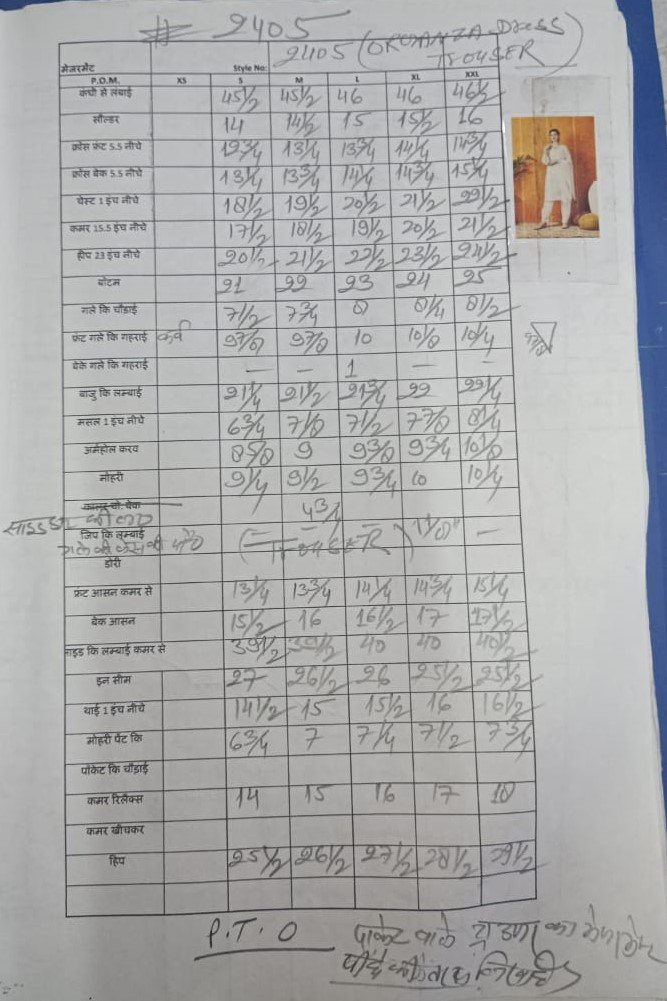 # 2405
2405 (ORGANZA DRESS
TROUSER)
मेजरमेंट Style No:
P.O.M. XS S M L XL XXL
कंधो से लंबाई 45½ 45½ 46 46 46½
सोल्डर 14 14½ 15 15½ 16
क्रोस फ्रंट 5.5 नीचे 12¾ 13¼ 13¾ 14¼ 14¾
क्रोस बेक 5.5 नीचे 13¼ 13¾ 14¼ 14¾ 15¼
चेस्ट 1 इंच नीचे 18½ 19½ 20½ 21½ 22½
कमर 15.5 इंच नीचे 17½ 18½ 19½ 20½ 21½
हीप 23 इंच नीचे 20½ 21½ 22½ 23½ 24½
बोटम 21 22 23 24 25
गले कि चौड़ाई 7½ 7¾ 8 8¼ 8½
फ्रंट गले कि गहराई कर्व 9⅞ 9⅞ 10 10⅛ 10¼
बेक गले कि गहराई — — 1 — —
बाजु कि लम्बाई 21¼ 21½ 21¾ 22 22¼
मसल 1 इंच नीचे 6¾ 7⅛ 7½ 7⅞ 8¼
अर्महोल करव 8⅝ 9 9⅜ 9¾ 10⅛
मोहरी 9¼ 9½ 9¾ 10 10¼
4¾
साइड
जिप कि लम्बाई — — — —
डोरी (TROUSER) 1⅛"
फ्रंट आसन कमर से 13¼ 13¾ 14¼ 14¾ 15¼
बेक आसन 15½ 16 16½ 17 17½
साइड कि लम्बाई कमर से 39½ 39½ 40 40 40½
इन सीम 27 26½ 26 25½ 25½
थाई 1 इंच नीचे 14½ 15 15½ 16 16½
मोहरी पेंट कि 6¾ 7 7¼ 7½ 7¾
पोकेट कि चौड़ाई
कमर रिलैक्स 14 15 16 17 18
कमर खीचकर
हिप 25½ 26½ 27½ 28½ 29½
P.T.O पाकेट वाले